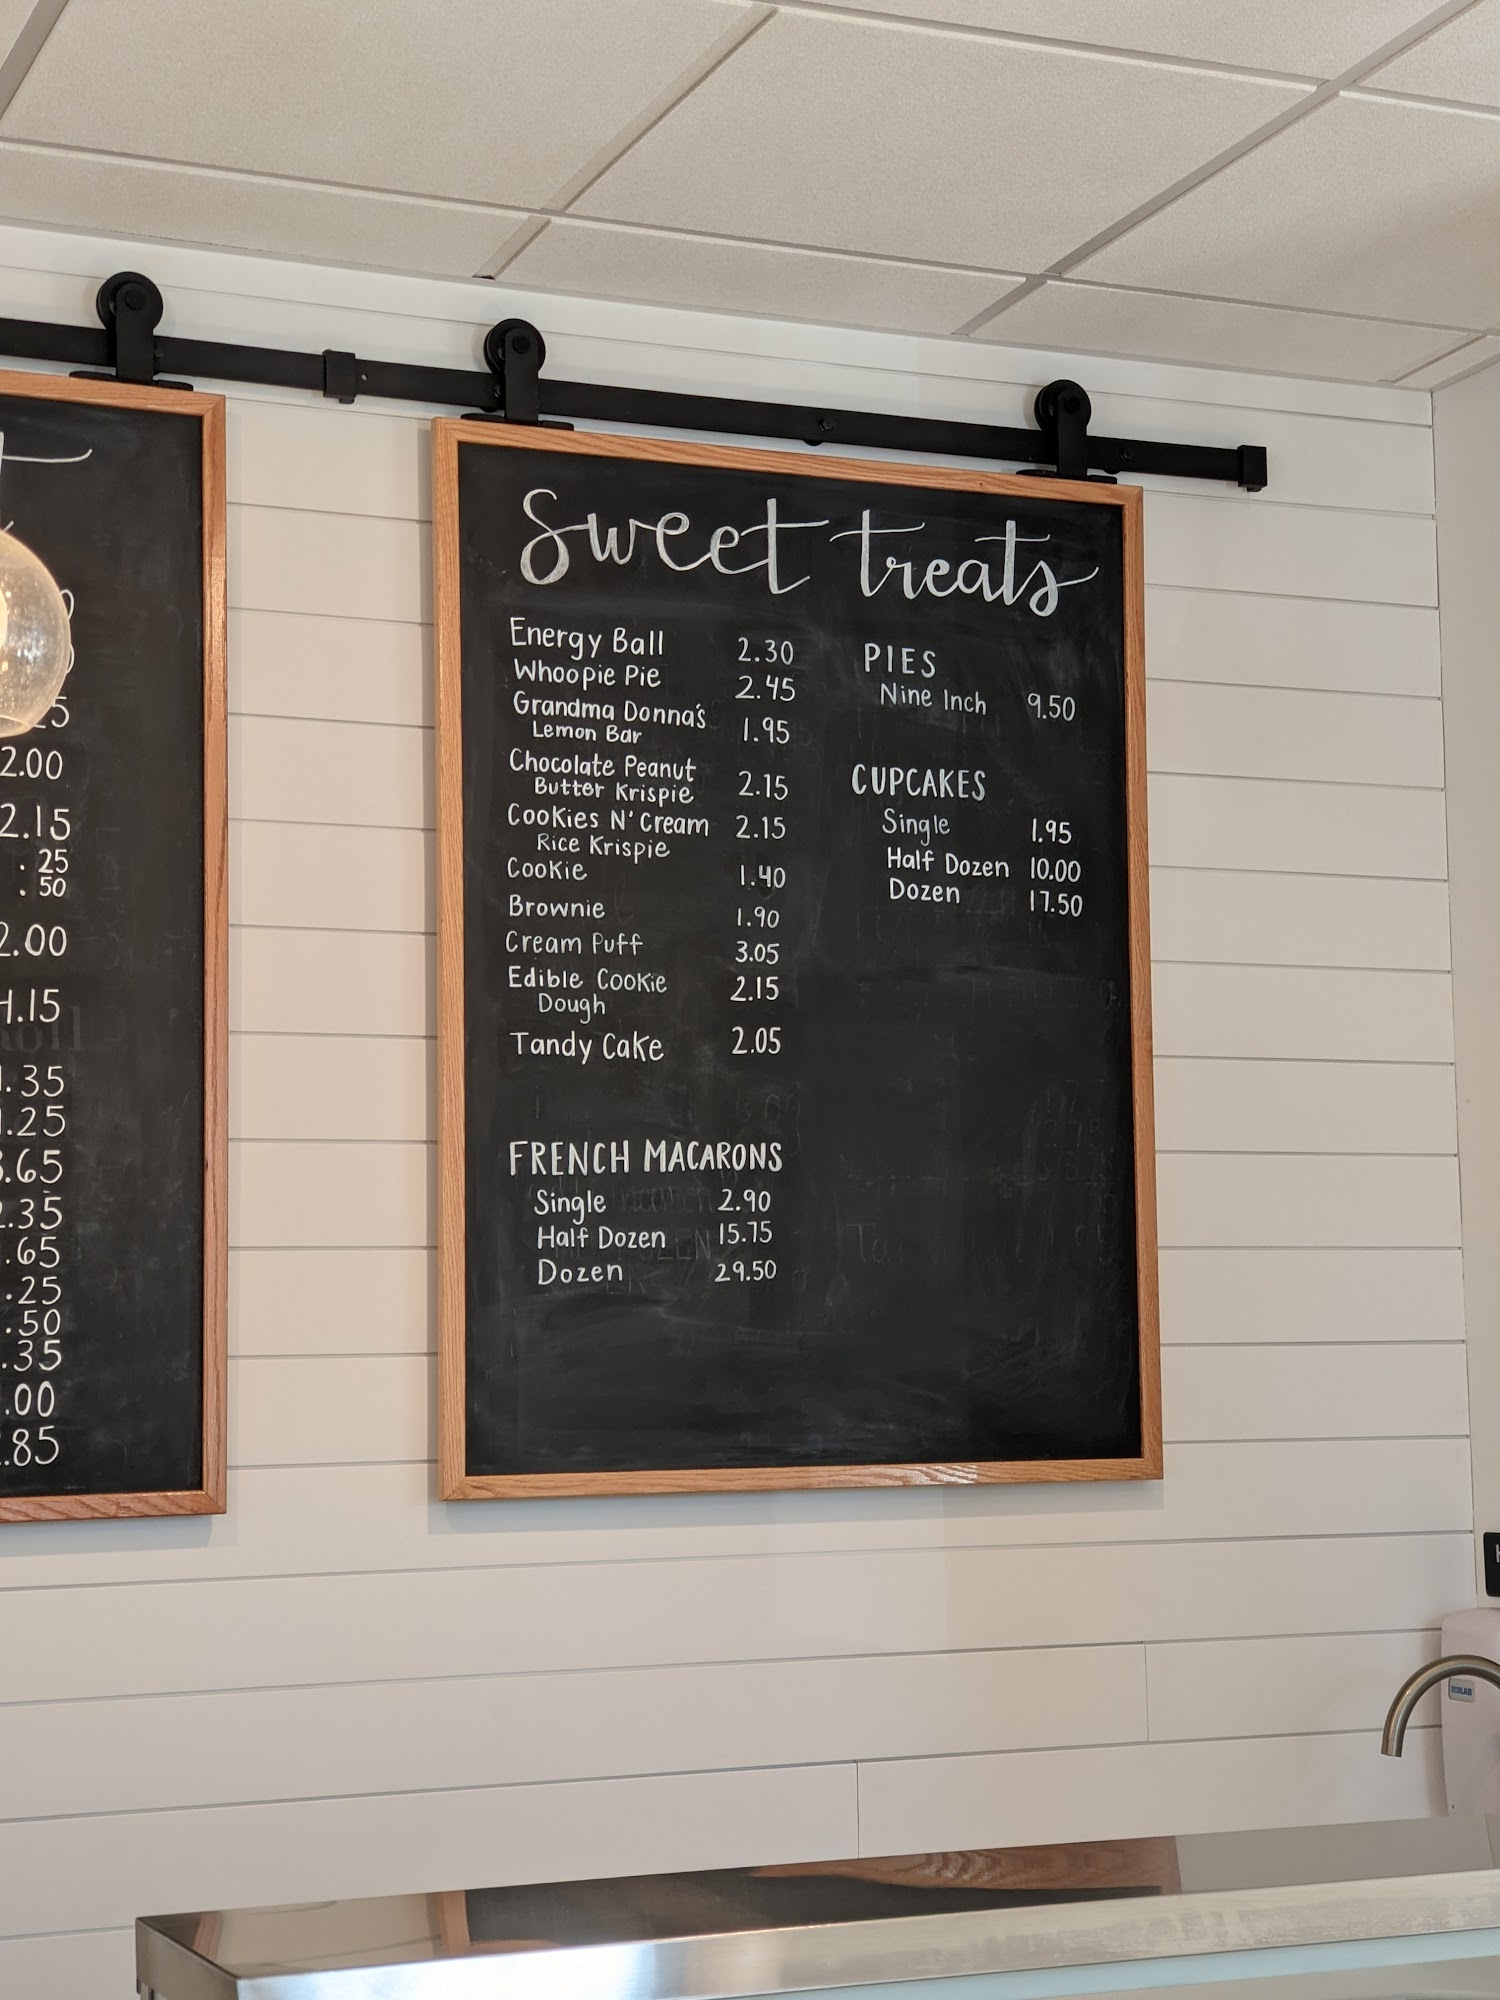 2.00
2.15
. 25
. 50
2.00
4.15
.35
.25
.65
.35
.65
.25
.50
.35
.00
.85
Sweet treats
Energy Ball 2.30
Whoopie Pie 2.45
Grandma Donna's
Lemon Bar 1.95
Chocolate Peanut
Butter Krispie 2.15
Cookies N' Cream 2.15
Rice Krispie
Cookie 1.40
Brownie 1.90
Cream Puff 3.05
Edible Cookie 2.15
Dough
Tandy Cake 2.05
FRENCH MACARONS
Single 2.90
Half Dozen 15.75
Dozen 29.50
PIES
Nine Inch 9.50
CUPCAKES
Single 1.95
Half Dozen 10.00
Dozen 17.50
ECOLAB